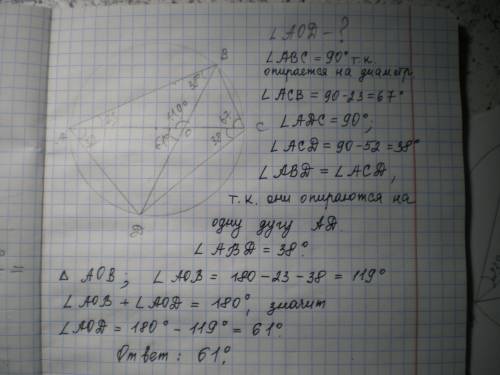 ∠AOD - ?
∠ABC = 90° т.к.
опирается на диаметр.
∠ACB = 90-23 = 67°
∠ADC = 90°,
∠ACD = 90-52 = 38°
∠ABD = ∠ACD,
т.к. они опираются на
одну дугу AD
∠ABD = 38°.
△ AOB; ∠AOB = 180-23-38 = 119°
∠AOB + ∠AOD = 180°, значит
∠AOD = 180° - 119° = 61°.
Ответ: 61°.
B
38°
119°
23
A
52
61°
O
67
38
C
D